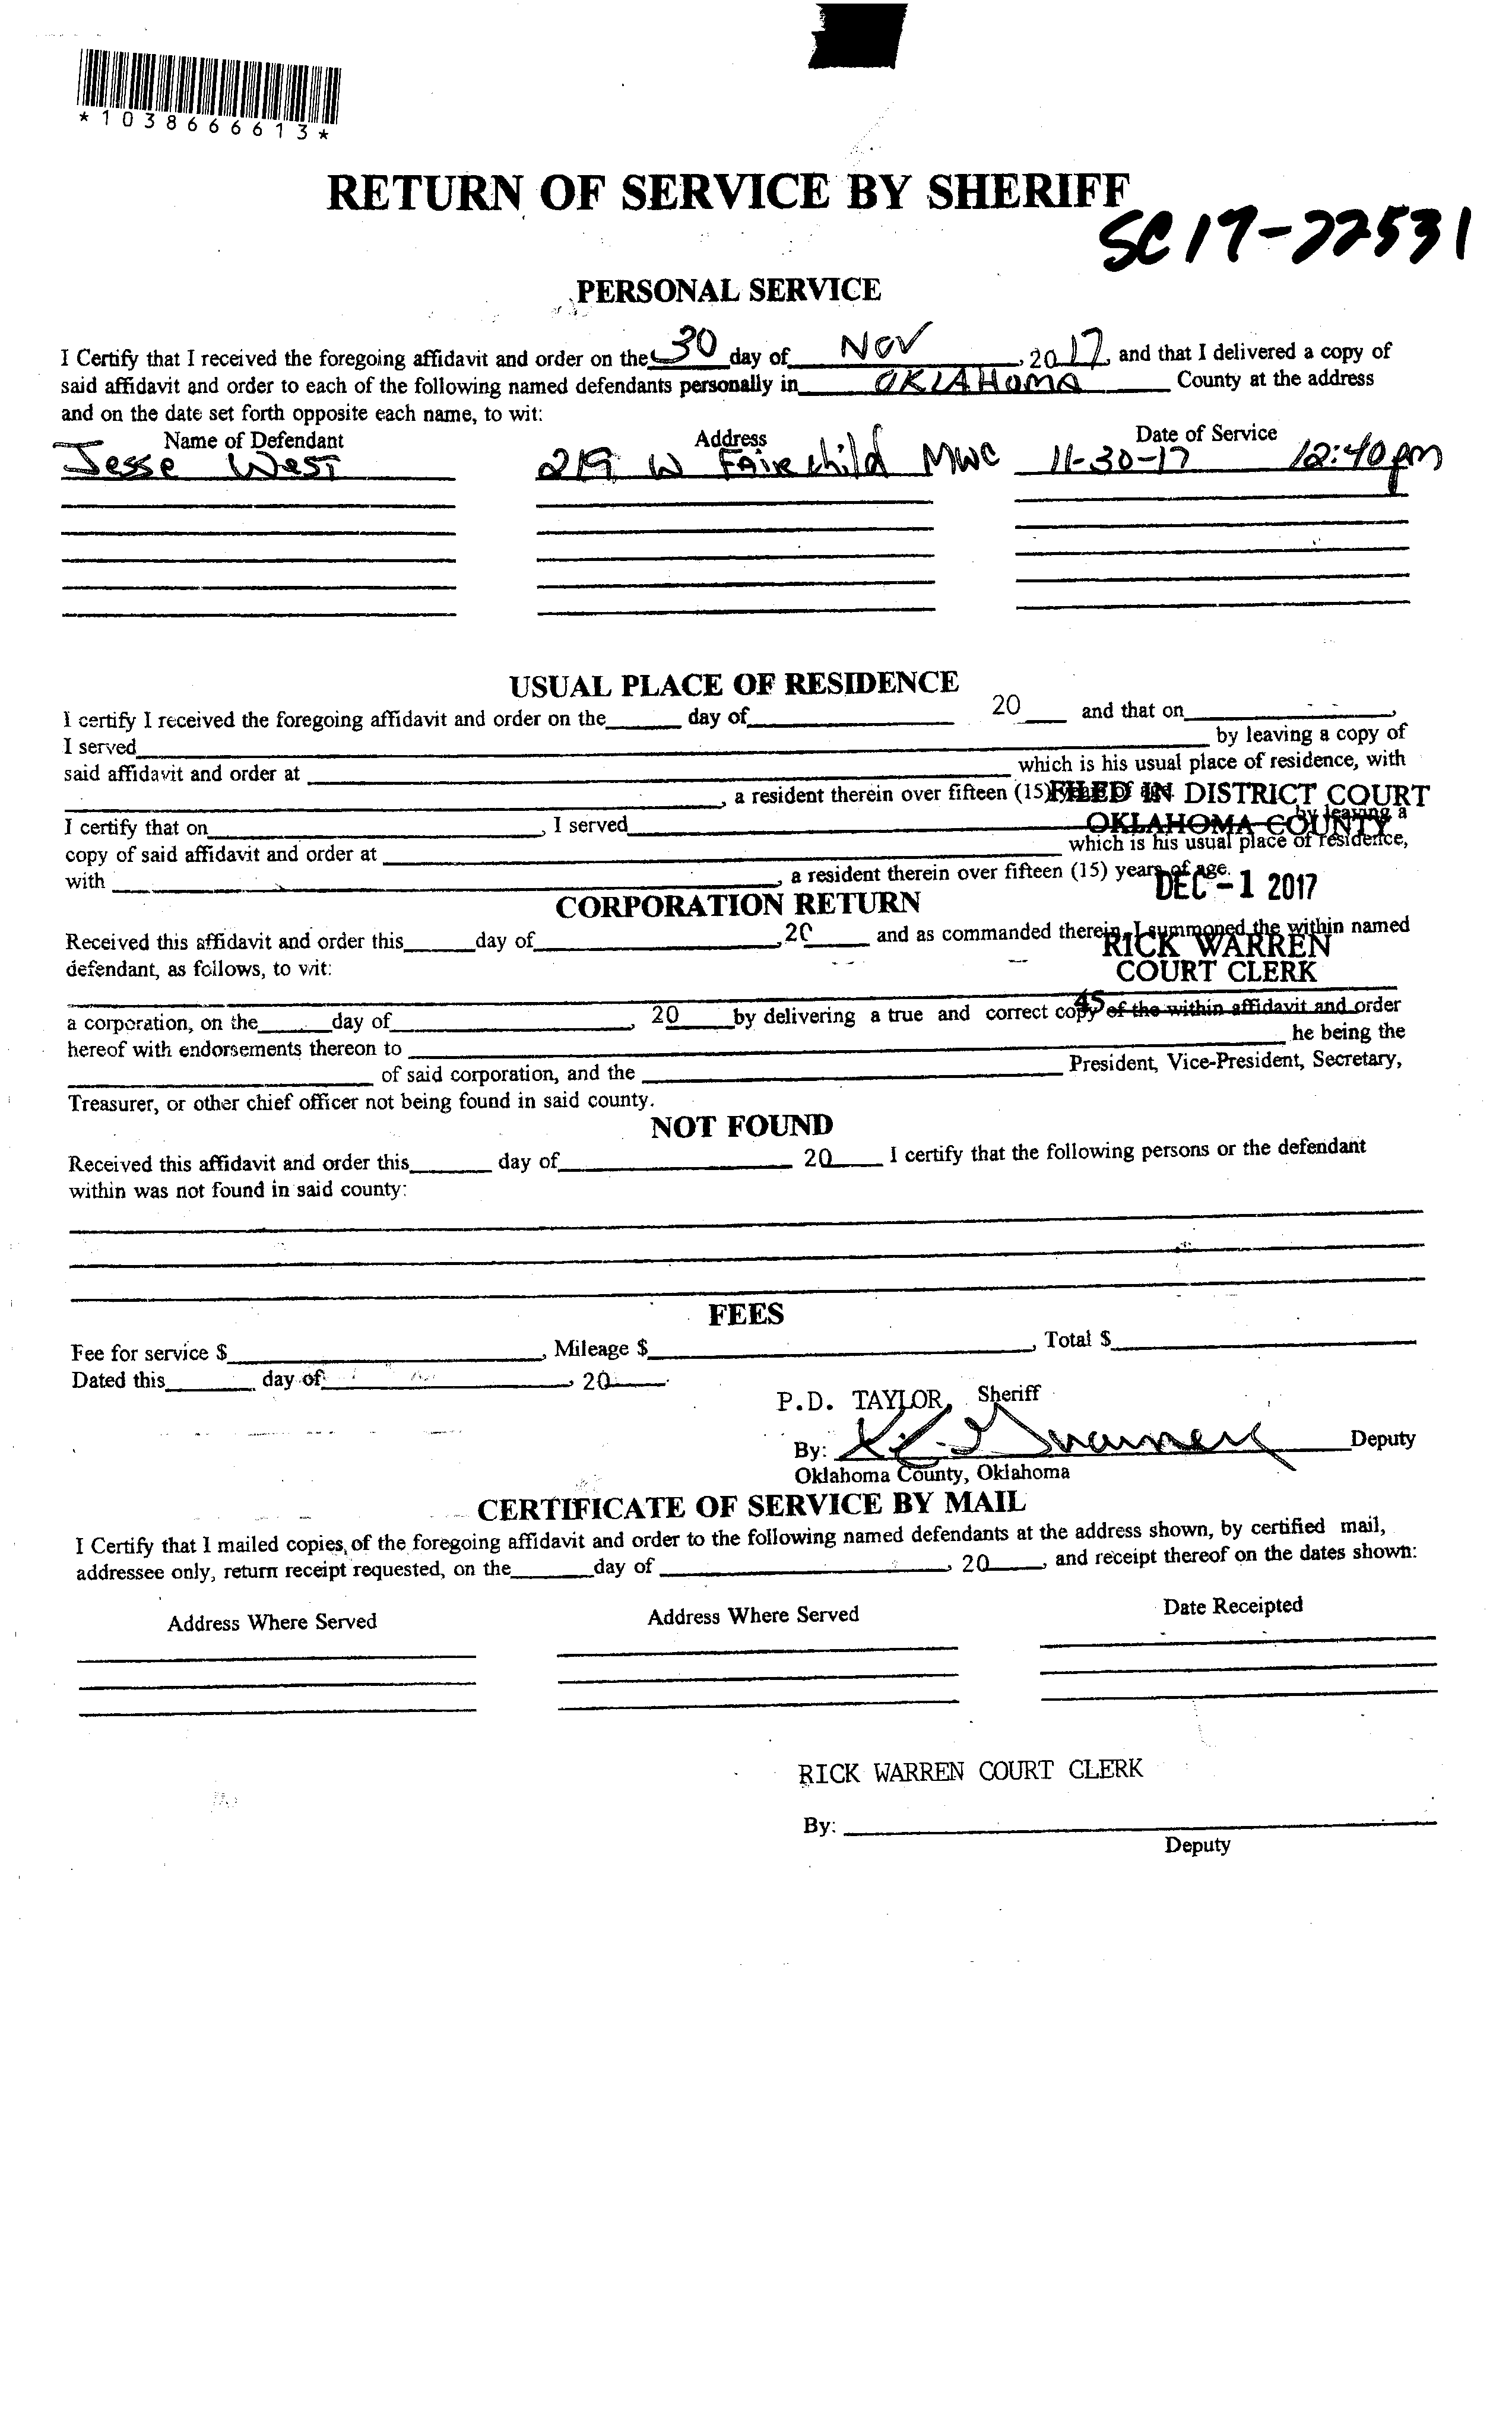 *1038666613*
RETURN OF SERVICE BY SHERIFF
SC17-22531
PERSONAL SERVICE
I Certify that I received the foregoing affidavit and order on the 30 day of Nov, 2017, and that I delivered a copy of
said affidavit and order to each of the following named defendants personally in OKLAHOMA County at the address
and on the date set forth opposite each name, to wit:
Name of Defendant Address Date of Service
Jesse West 219 W Fairchild MWC 11-30-17 12:40pm
USUAL PLACE OF RESIDENCE
I certify I received the foregoing affidavit and order on the ______ day of ______ 20____ and that on ______,
I served ______ by leaving a copy of
said affidavit and order at ______ which is his usual place of residence, with
______, a resident therein over fifteen (15) years of age.
FILED IN DISTRICT COURT
OKLAHOMA COUNTY
I certify that on ______, I served ______ by leaving a
copy of said affidavit and order at ______ which is his usual place of residence,
with ______, a resident therein over fifteen (15) years of age.
DEC -1 2017
CORPORATION RETURN
Received this affidavit and order this ______ day of ______, 20____ and as commanded therein, I summoned the within named
RICK WARREN
defendant, as follows, to wit:
COURT CLERK
45
a corporation, on the ______ day of ______, 20____ by delivering a true and correct copy of the within affidavit and order
hereof with endorsements thereon to ______ he being the
______ of said corporation, and the ______ President, Vice-President, Secretary,
Treasurer, or other chief officer not being found in said county.
NOT FOUND
Received this affidavit and order this ______ day of ______ 20____ I certify that the following persons or the defendant
within was not found in said county:
FEES
Fee for service $______, Mileage $______, Total $______
Dated this ______ day of ______, 20____.
P.D. TAYLOR, Sheriff
By: ______ Deputy
Oklahoma County, Oklahoma
CERTIFICATE OF SERVICE BY MAIL
I Certify that I mailed copies of the foregoing affidavit and order to the following named defendants at the address shown, by certified mail,
addressee only, return receipt requested, on the ______ day of ______, 20____, and receipt thereof on the dates shown:
Address Where Served Address Where Served Date Receipted
RICK WARREN COURT CLERK
By: ______
Deputy